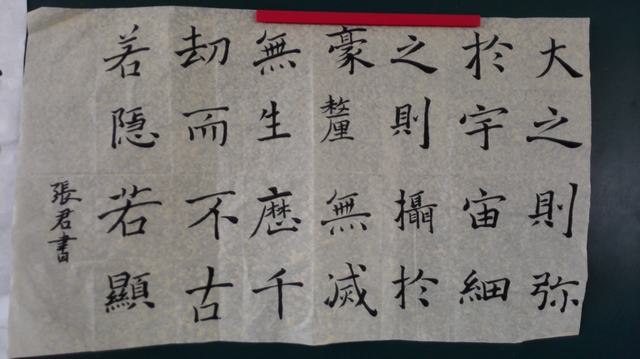 大之則弥
於宇宙細
之則攝於
豪釐無滅
無生歷千
劫而不古
若隱若顯
張君書